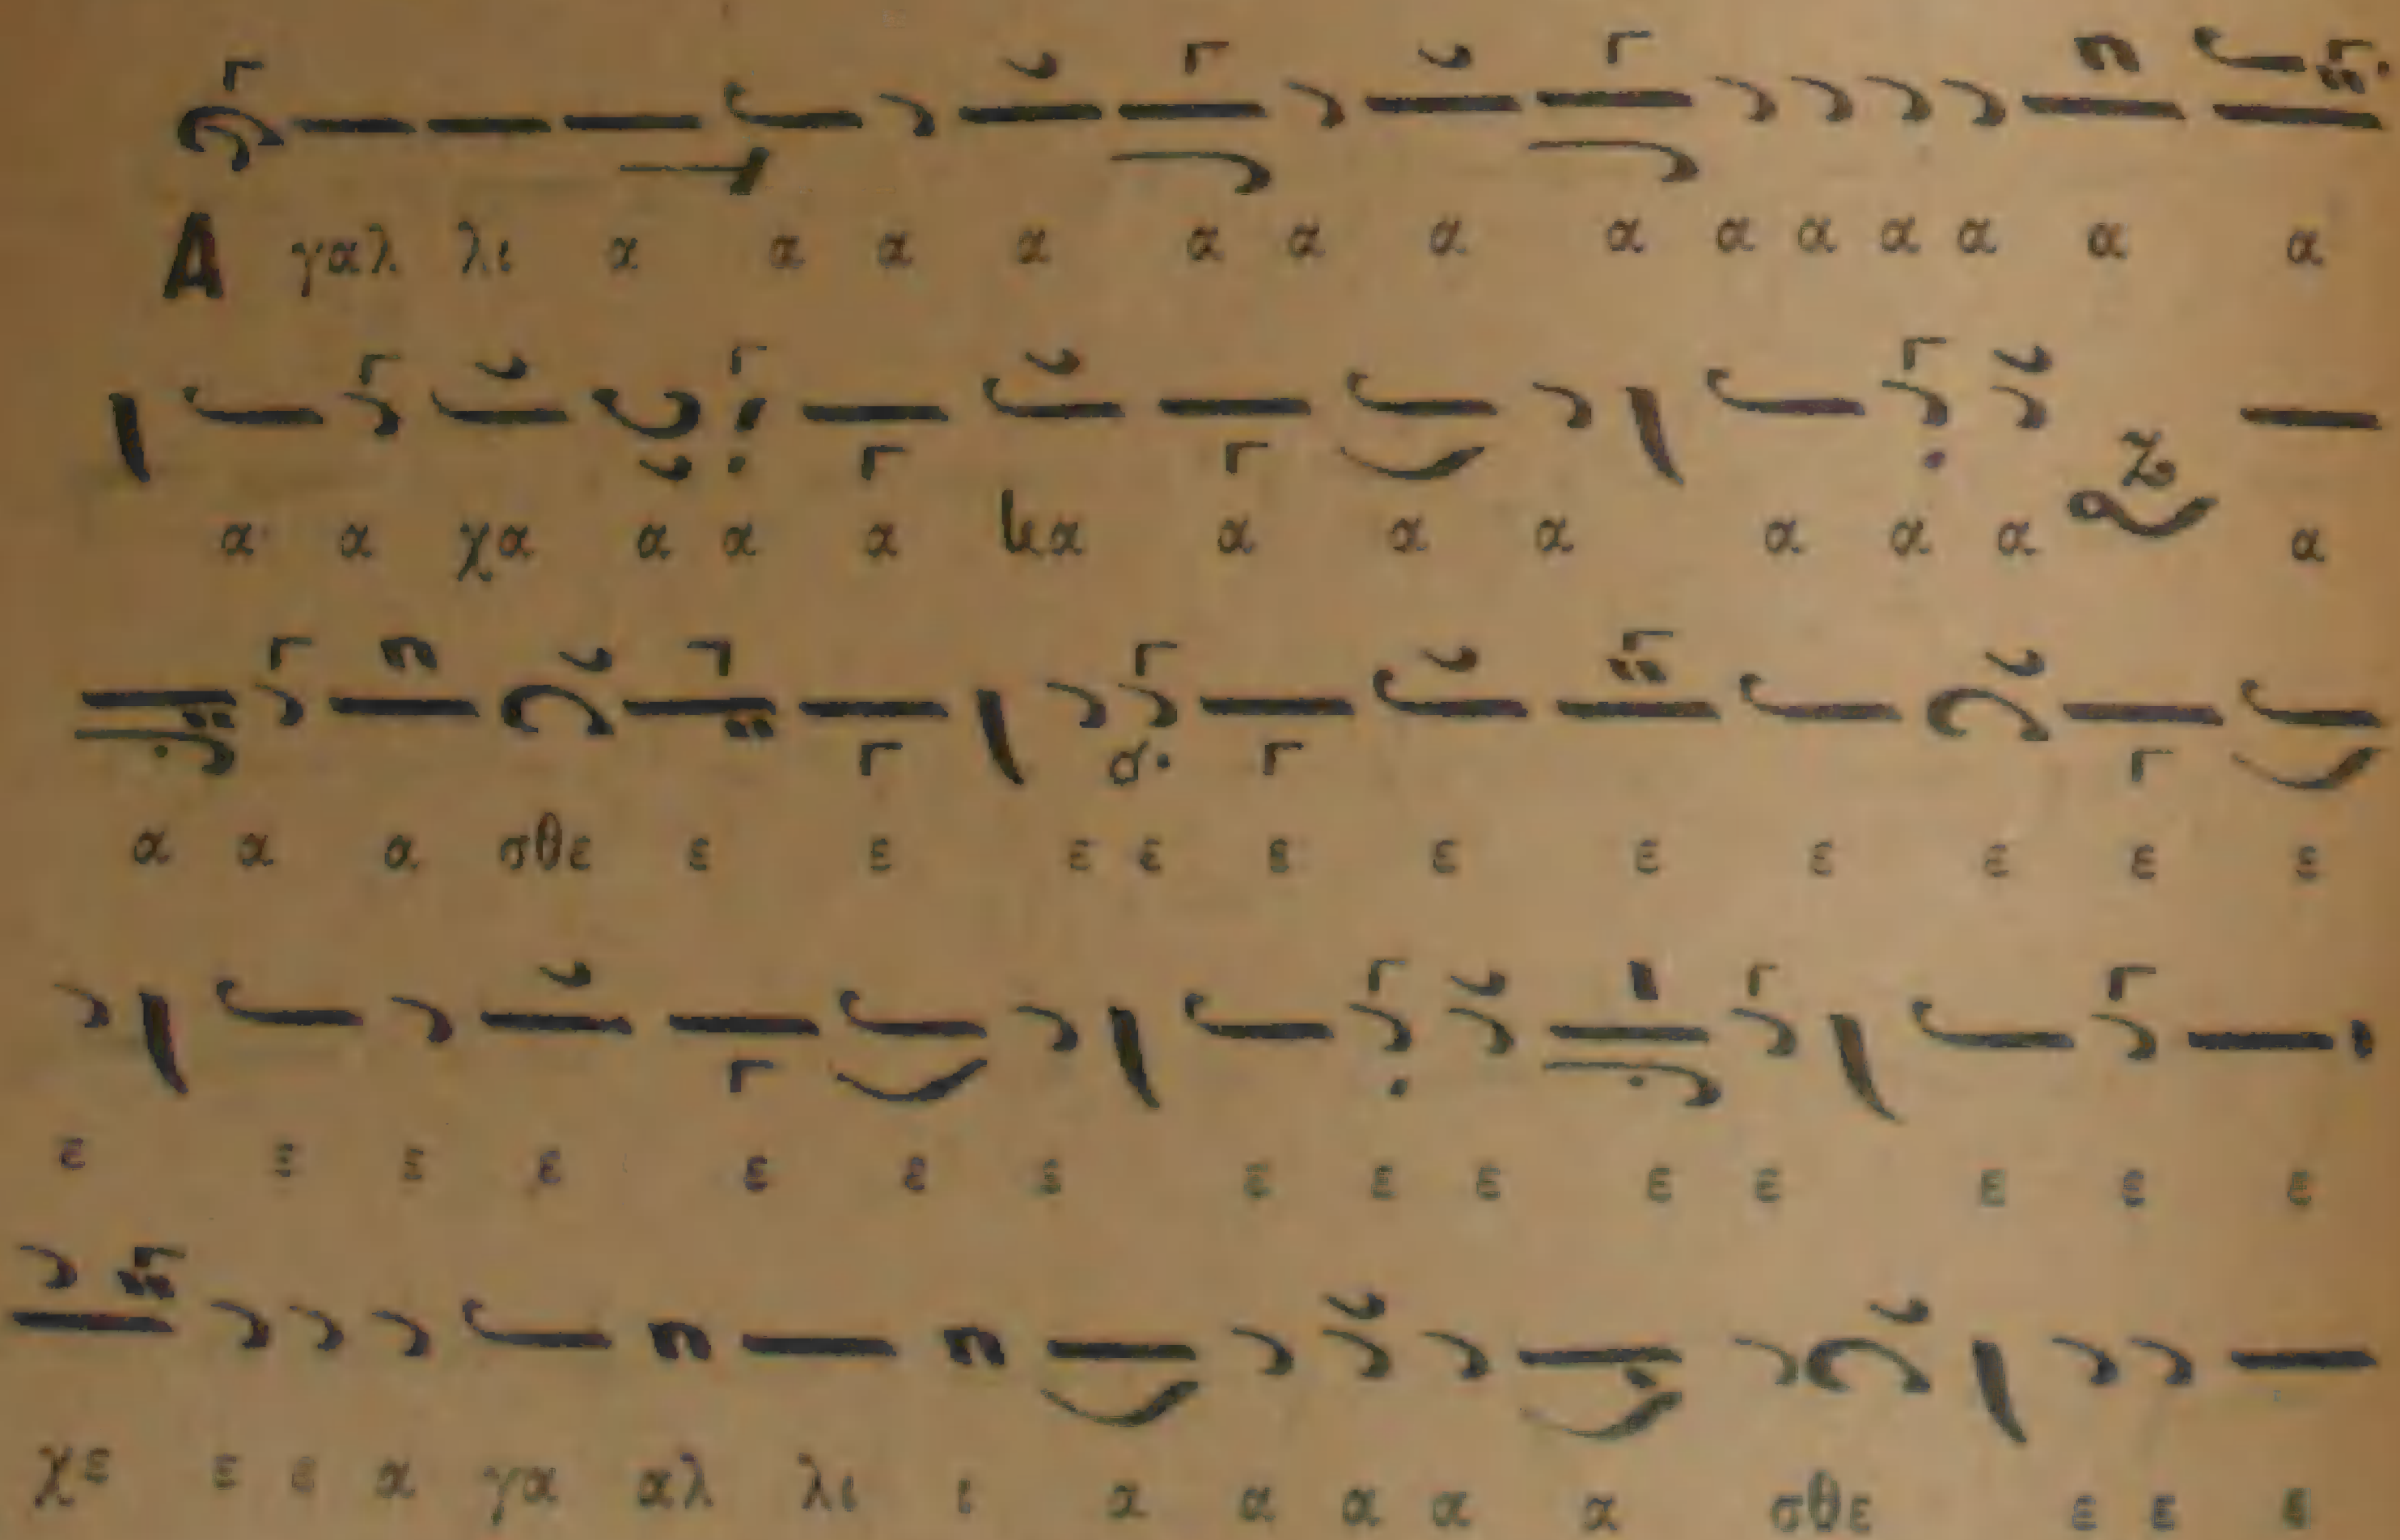 Α γαλ λι α α α α α α α α α α α α α α
α α χα α α α υα α α α α α α α
α α α σθε ε ε ε ε ε ε ε ε ε ε ε
ε ε ε ε ε ε ε ε ε ε ε ε ε ε ε
χε ε ε α γα αλ λι ι α α α α α σθε ε ε ε